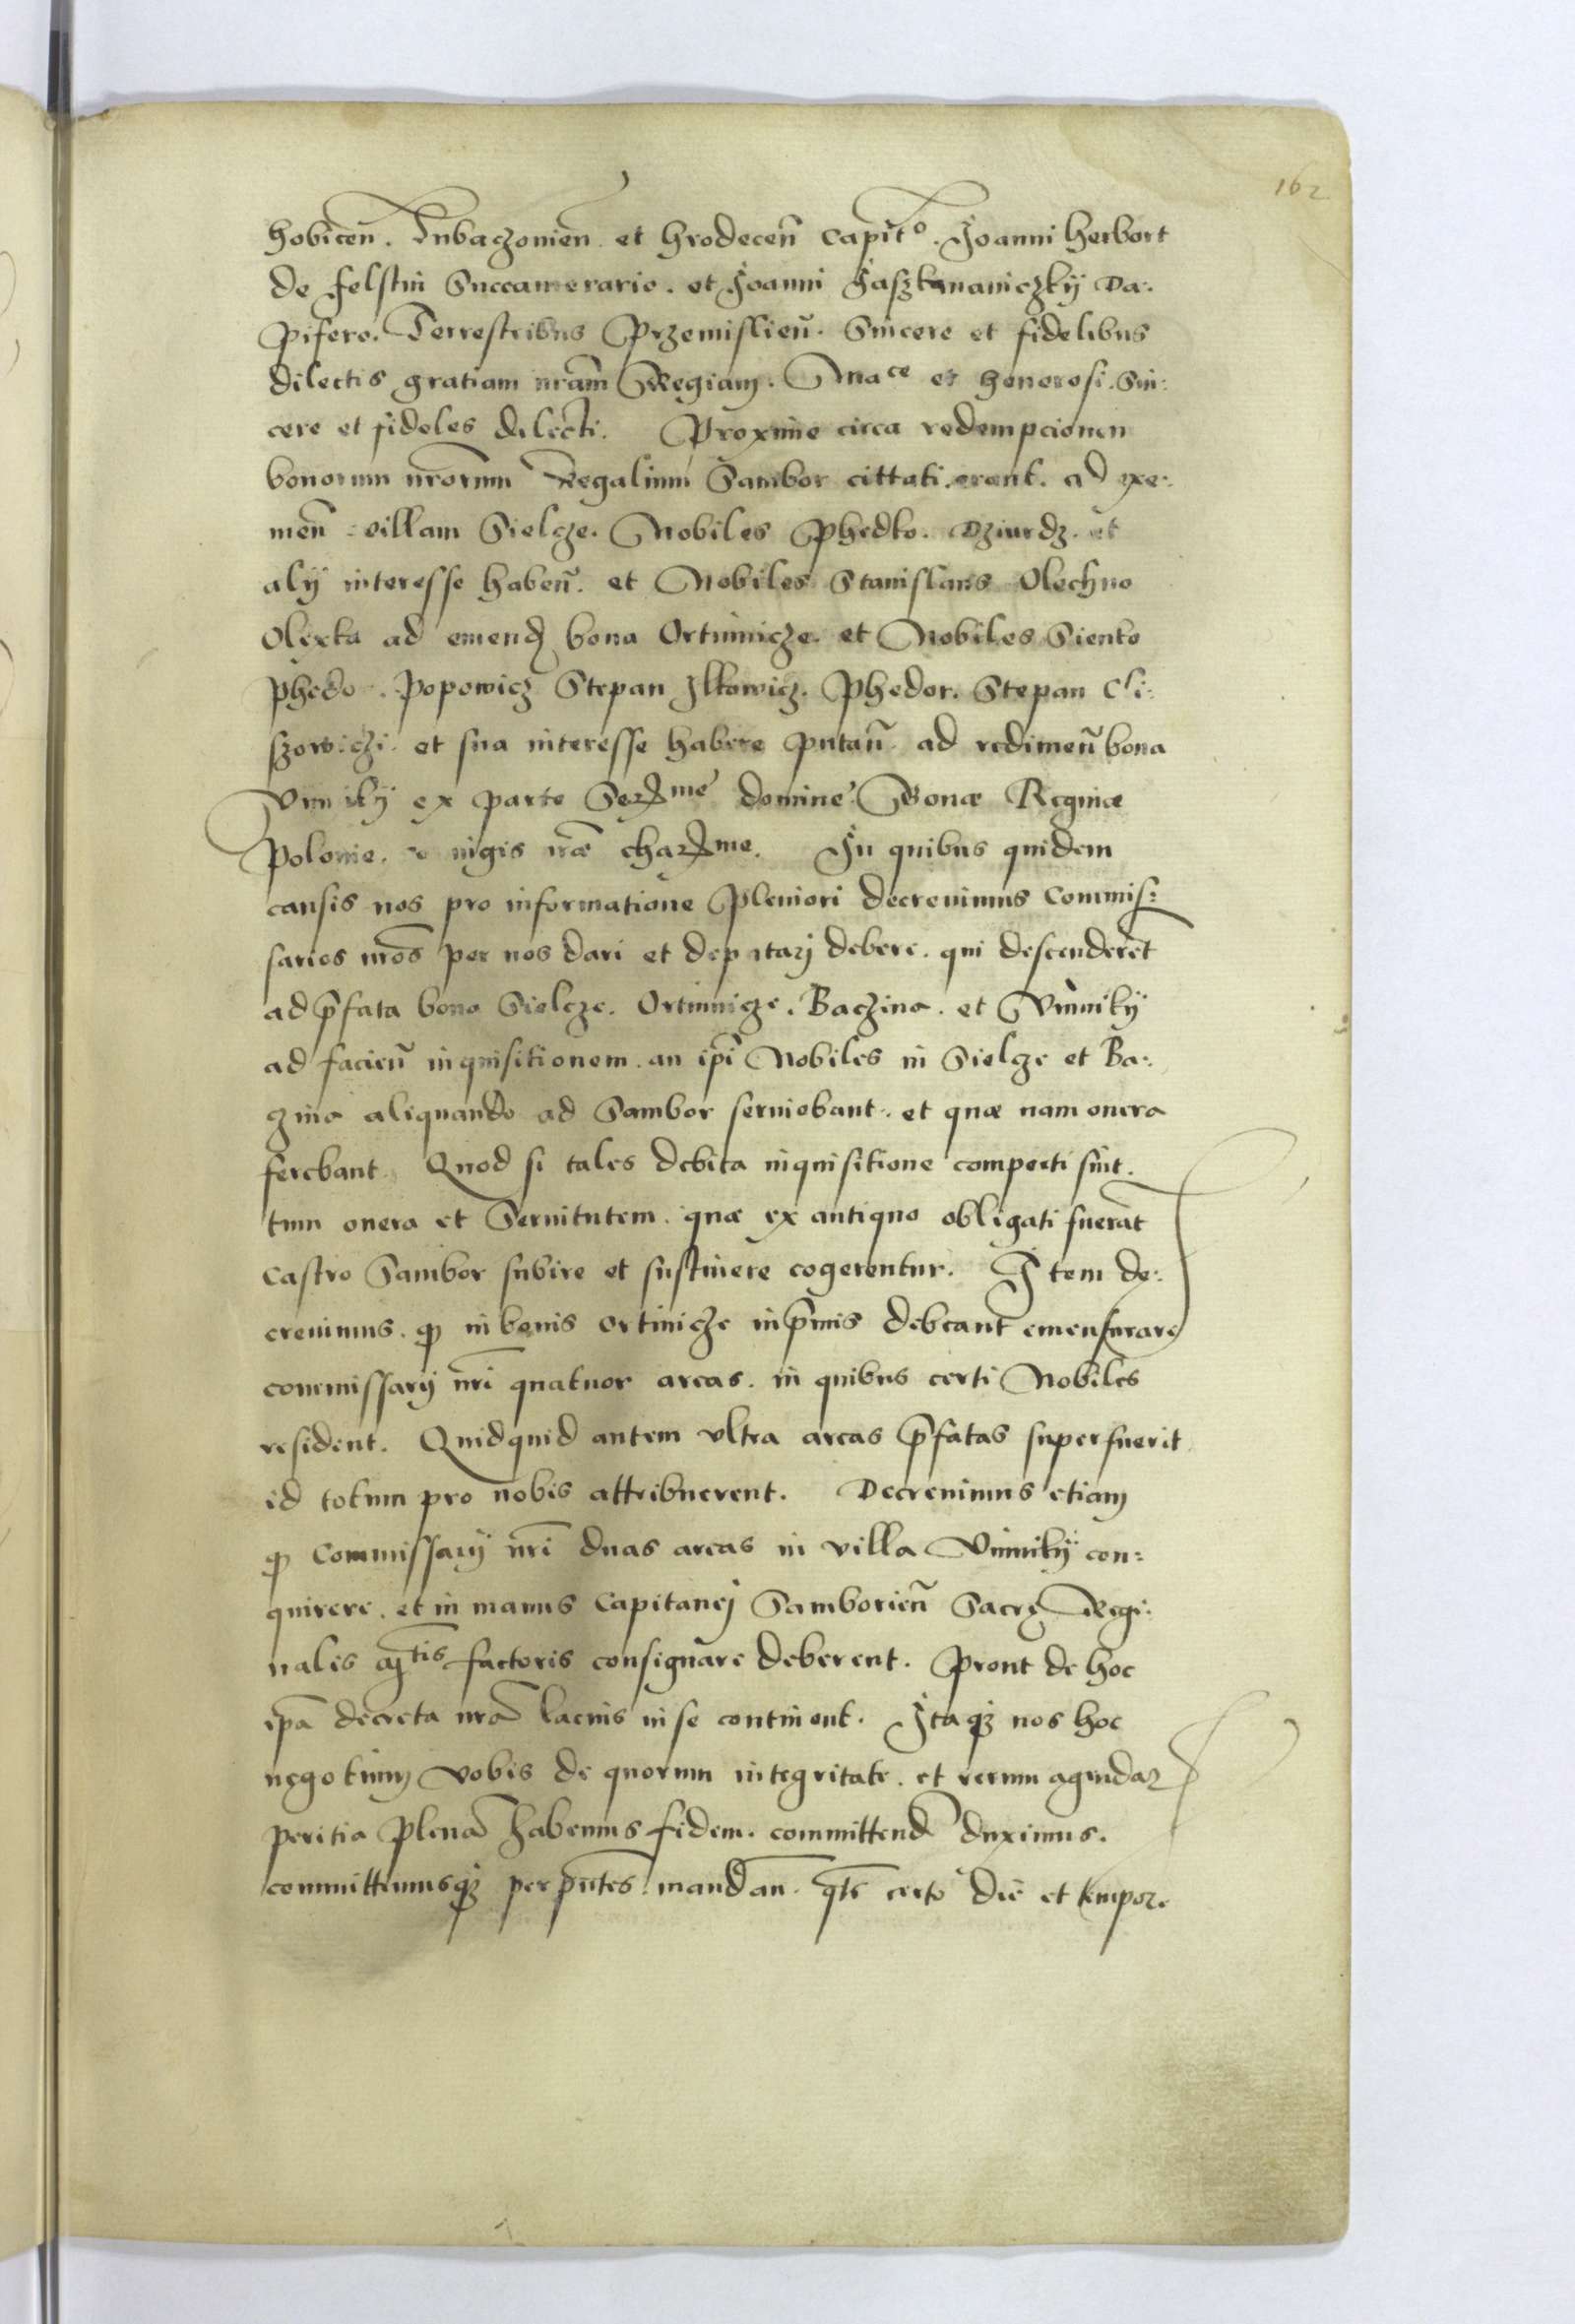 162
hobicen̄. Lubaczonien̄ et hrodecen̄ Capit͠o. Joanni herbort
de Felstin Succamerario. et Joanni Jaszkmaniczkÿ Da:
pifero. Terrestribus Przemislien̄. Sincere et fidelibus
dilectis gratiam nr̄am Regiam. Mᵃᶜᵉ et Generosi. Sin:
cere et fideles dilecti. Proxime circa redempcionem
bonorum nr̄orum Regalium Sambor cittati erant. ad exe:
men̄ villam Sielcze. Nobiles Phedko. Dziurdz. et
alÿ interesse haben̄. et Nobiles Stanislaus Olechno
Olexka ad emend bona Ortinicze. et Nobiles Sienko
Phedo. Popowicz Stepan Ilkowicz. Phedor. Stepan Cli:
szowiczi. et sua interesse habere putan̄. ad redimen̄ bona
Vnnikÿ ex parte Serᵐᵉ domine Bonæ Reginæ
Polonie. nigis nr̄æ charᵐᵉ. In quibus quidem
causis nos pro informatione pleniori decreuimus Commis:
sarios nr̄os per nos dari et deputarj debere. qui descenderēt
ad p̄fata bona Sielcze. Ortinicze. Baczina. et Vnnikÿ
ad facien̄ inquisitionem. an ip̄i Nobiles in Sielcze et Ba:
czina aliquando ad Sambor seruiebant. et quæ nam onera
ferebant. Quod si tales debita inquisitione comperti sint.
tum onera et Seruitutem. quæ ex antiquo obligati fuerāt
Castro Sambor subire et sustinere cogerentur. Item de:
creuimus. qꝫ in bonis Ortinicze inp̄mis debeant emensurare
commissarÿ nr̄i quatuor areas. in quibus certi Nobiles
resident. Quidquid autem vltra areas p̄fatas superfuerit
id totum pro nobis attribuerent. Decreuimus etiam
qꝫ Commissarÿ nr̄i duas areas in villa Vinnikÿ con:
quirere. et in manus Capitanej Samborien̄ Sacrę Regi:
nalis Mᵗⁱˢ factoris consignare deberent. Prout de hoc
ip̄a decreta nr̄a lacius in se continent. Itaqꝫ nos hoc
negotium vobis de quorum integritate. et rerum agendaꝝ
peritia plenā habemus fidem. committend̄ duximus.
committimusqꝫ per p̄ntes. mandan̄. qt̄s certo die et tempore